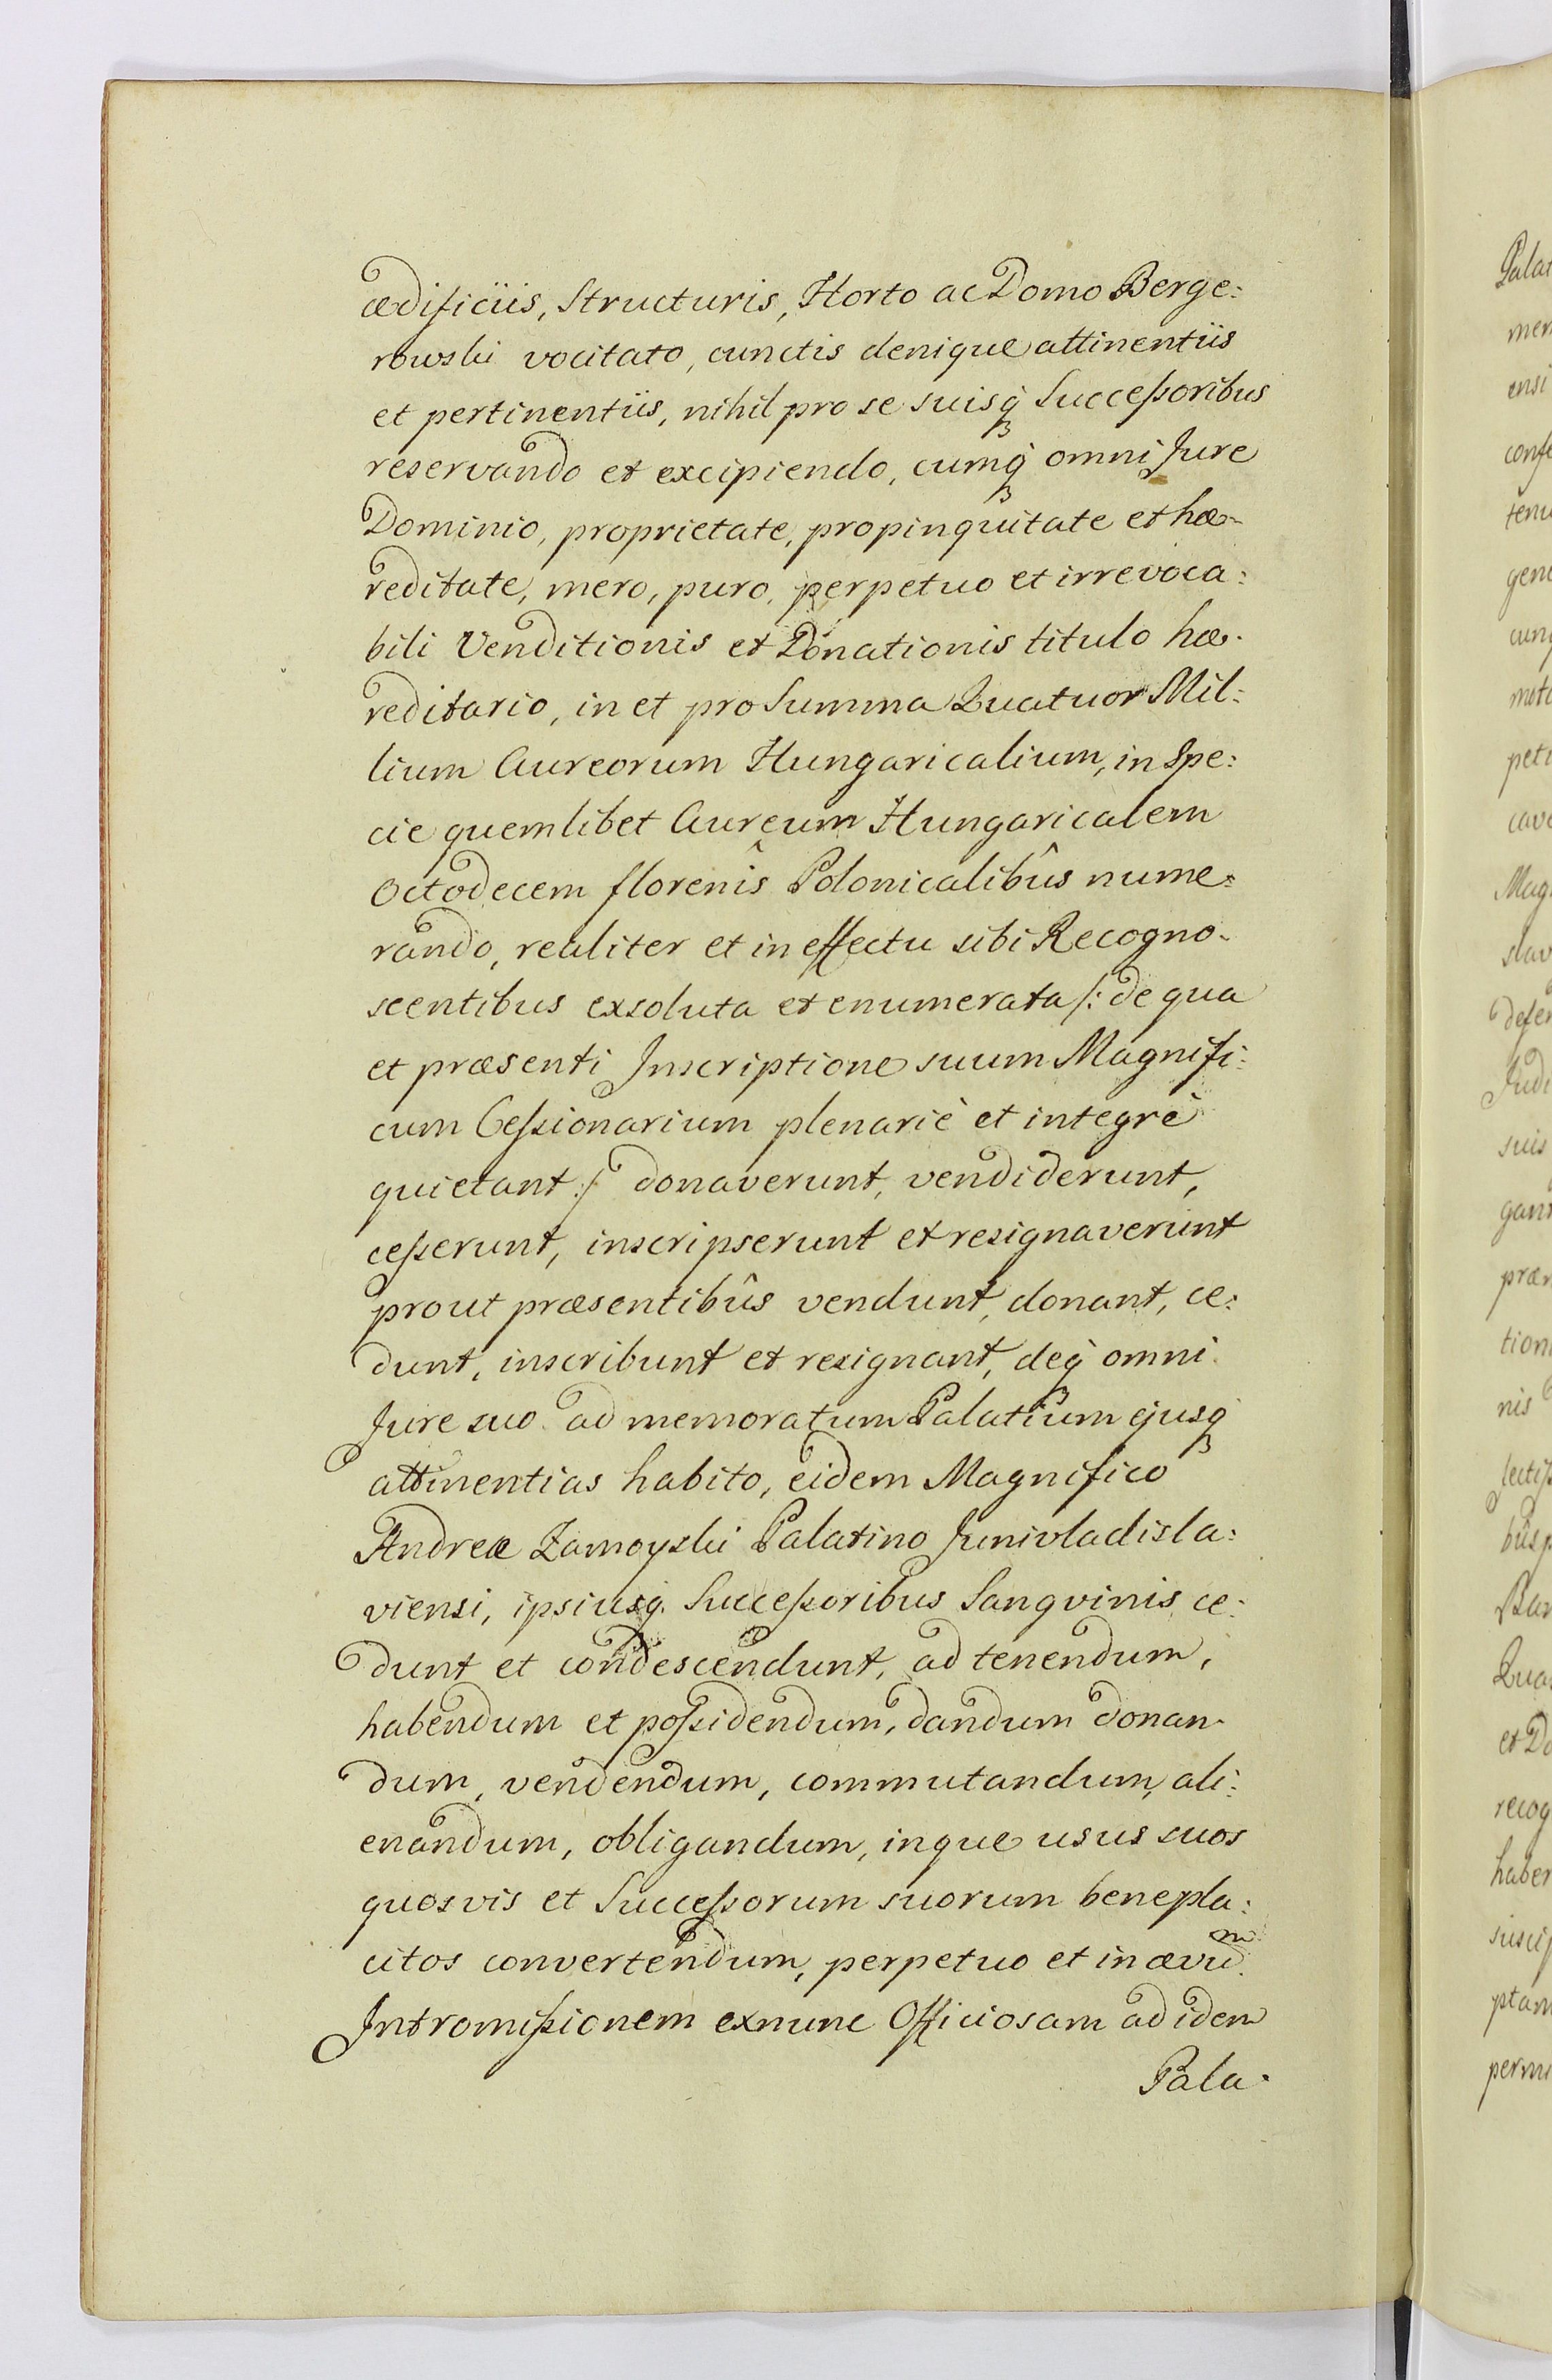 ædificiis, Structuris, Horto ac Domo Berge:
rowski vocitato, cunctis denique attinentiis
et pertinentiis, nihil pro se suisq́ꝫ Successoribus
reservando et excipiendo, cumq́ꝫ omni Jure
Dominio, proprietate, propinquitate et hæ-
reditate, mero, puro, perpetuo et irrevoca:
bili Venditionis et Donationis titulo hæ-
reditario, in et pro Summa Quatuor Mil:
lium Aureorum Hungaricalium, in Spe:
cie quemlibet Aureum Hungaricalem
Octodecem florenîs Polonicalibûs nume:
rando, realiter et in effectu sibi Recogno-
scentibus exsoluta et enumerata /: de qua
et præsenti Inscriptione suum Magnifi:
cum Cessionarium plenariè et integrè
quietant :/ donaverunt, vendiderunt,
cesserunt, inscripserunt et resignaverunt
prout præsentibûs vendunt, donant, ce:
dunt, inscribunt et resignant, deq́ꝫ omni
Jure suo ad memoratum Palatium ejusq́ꝫ
attinentias habito, eidem Magnifico
Andreæ Zamoyski Palatino Junivladisla:
viensi, ipsiusq́ꝫ Successoribus Sangvinis ce:
dunt et condescendunt, ad tenendum,
habendum et possidendum, dandum donan-
dum, vendendum, commutandum, ali:
enandum, obligandum, inque usus suos
quosvis et Successorum suorum benepla:
citos convertendum, perpetuo et in ævũ.
Intromissionem exnunc Officiosam ad idem
Pala-
Palat
men
ensi
confe
tenu
gene
cunq
meta
peti
cave
Mag
slav
defen
Judi
suis
gant
præ
tion
nis
lectis
bus p
Bar
Qua
et Do
recog
haber
suscip
ptam
permi